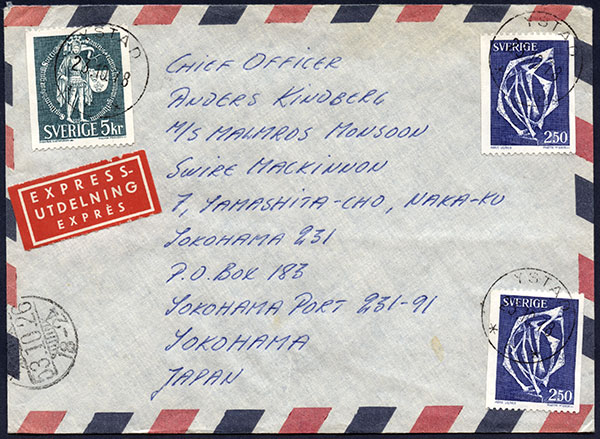 YSTAD
SVERIGE 5kr
EXPRESS-
UTDELNING
EXPRÈS
CHIEF OFFICER
ANDERS KINDBERG
M/S MALMROS MONSOON
SWIRE MACKINNON
7, YAMASHITA-CHO, NAKA-KU
YOKOHAMA 231
P.O. BOX 183
YOKOHAMA PORT 231-91
YOKOHAMA
JAPAN
YSTAD
SVERIGE
2.50
YSTAD
SVERIGE
2.50